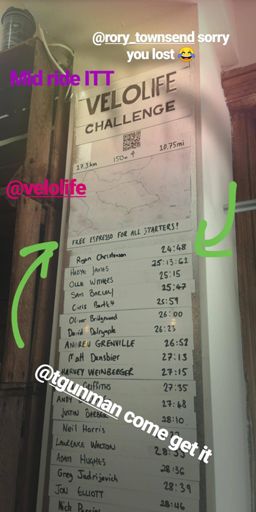 @rory_townsend sorry
you lost 😂
Mid ride ITT
VELOLIFE
CHALLENGE
17.3km 150m 10.75mi
@velolife
FREE ESPRESSO FOR ALL STARTERS!
Rogan Christenson 24:48
25:13:61
25:15
Sam 25:47
Chris Bartlett 25:59
Oliver Bridgewood 26:00
David Dalrymple 26:23
ANDREW GRENVILLE 26:52
Matt Dansbier 27:13
HARVEY WEINBERGER 27:15
Griffiths 27:35
ANDY 27:48
JUSTIN 28:10
Neil Harris
@tgunman come get it
LAURENCE WALTON
ADAM HUGHES 28:36
Greg 28:39
JON ELLIOTT
Nick 28:46